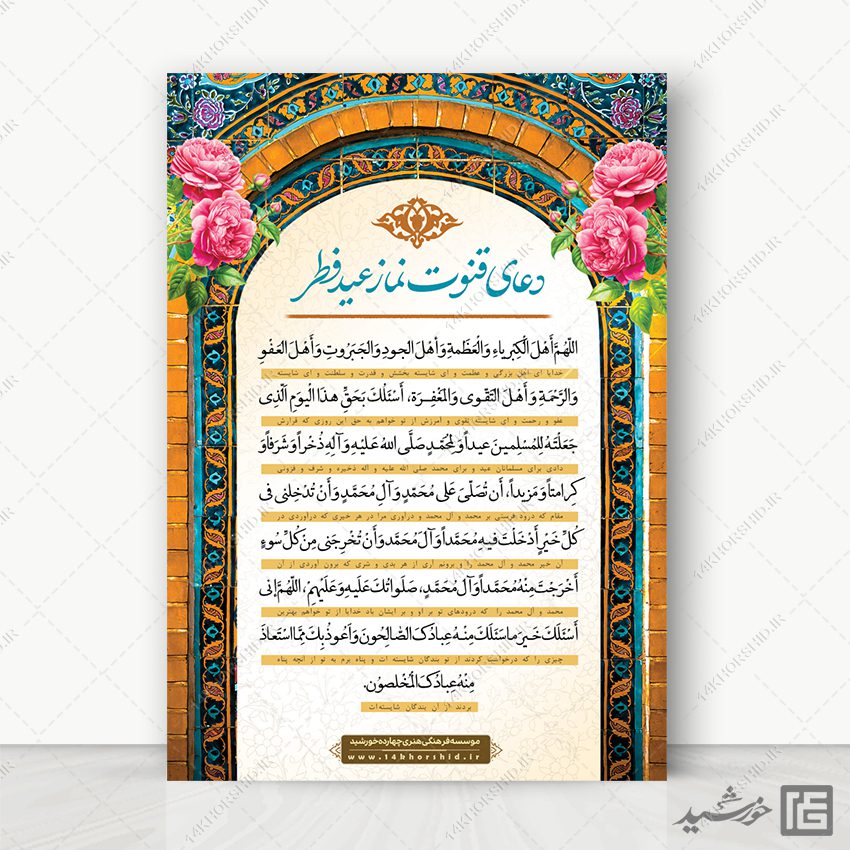 دعای قنوت نماز عید فطر
اَللّهُمَّ اَهْلَ الْكِبْرِیاءِ وَالْعَظَمَةِ وَاَهْلَ الجودِ وَالجَبَرُوتِ وَاَهْلَ العَفْوِ
خدایا ای اهل بزرگی و عظمت و ای شایسته بخشش و قدرت و سلطنت و ای شایسته
وَالرَّحْمَةِ وَاَهْلَ التَقْوی وَالمَغْفِرَة، اَسْئَلُكَ بَحَقِّ هذَا الْیومِ اَلَّذِی
عفو و رحمت و ای شایسته تقوی و آمرزش از تو خواهم به حق این روزی که قرارش
جَعَلْتَهُ لِلمُسلِمینَ عیداً وَلِمُحَمَّدٍ صَلَّی اللهُ عَلَیهِ وَآلِهِ ذُخْراً وَشَرَفاً وَ
دادی برای مسلمانان عید و برای محمد صلی الله علیه و اله ذخیره و شرف و فزونی
کِرامتاً وَمَزیداً، اَن تُصَلّیَ عَلی مُحَمَّدٍ وَآلِ مُحَمَّدٍ وَاَنْ تُدْخِلنی فی
مقام که درود فرستی بر محمد و آل محمد و درآوری مرا در هر خیری که درآوردی در
کُلِّ خَیْرٍ اَدْخَلْتَ فیهِ مُحَمَّداً وَآلَ مُحَمَّد وَاَنْ تُخْرِجَنی مِنْ کُلِّ سُوءٍ
آن خیر محمد و آل محمد را و برونم آری از هر بدی و شری که برون آوردی از آن
اَخْرَجْتَ مِنْهُ مُحَمَّداً وَآلَ مُحَمَّدٍ، صَلَواتُكَ عَلَیهِ وَعَلَیْهِمْ، اَللّهُمَّ اِنی
محمد و آل محمد را که درودهای تو بر او و بر ایشان باد خدایا از تو خواهم بهترین
اَسْئَلُكَ خَیرَ ما سَئَلَكَ مِنْهُ عِبادُکَ الصّالِحُونَ وَاَعُوذُ بِكَ مِمَّا اسْتَعاذَ
چیزی را که درخواستت کردند از تو بندگان شایسته ات و پناه برم به تو از آنچه پناه
مِنْهُ عِبادُکَ الْمُخلَصوُن.
بردند از آن بندگان شایسته‌ات
موسسه فرهنگی هنری چهارده خورشید
www.14khorshid.ir
خورشید
14KHORSHID.IR